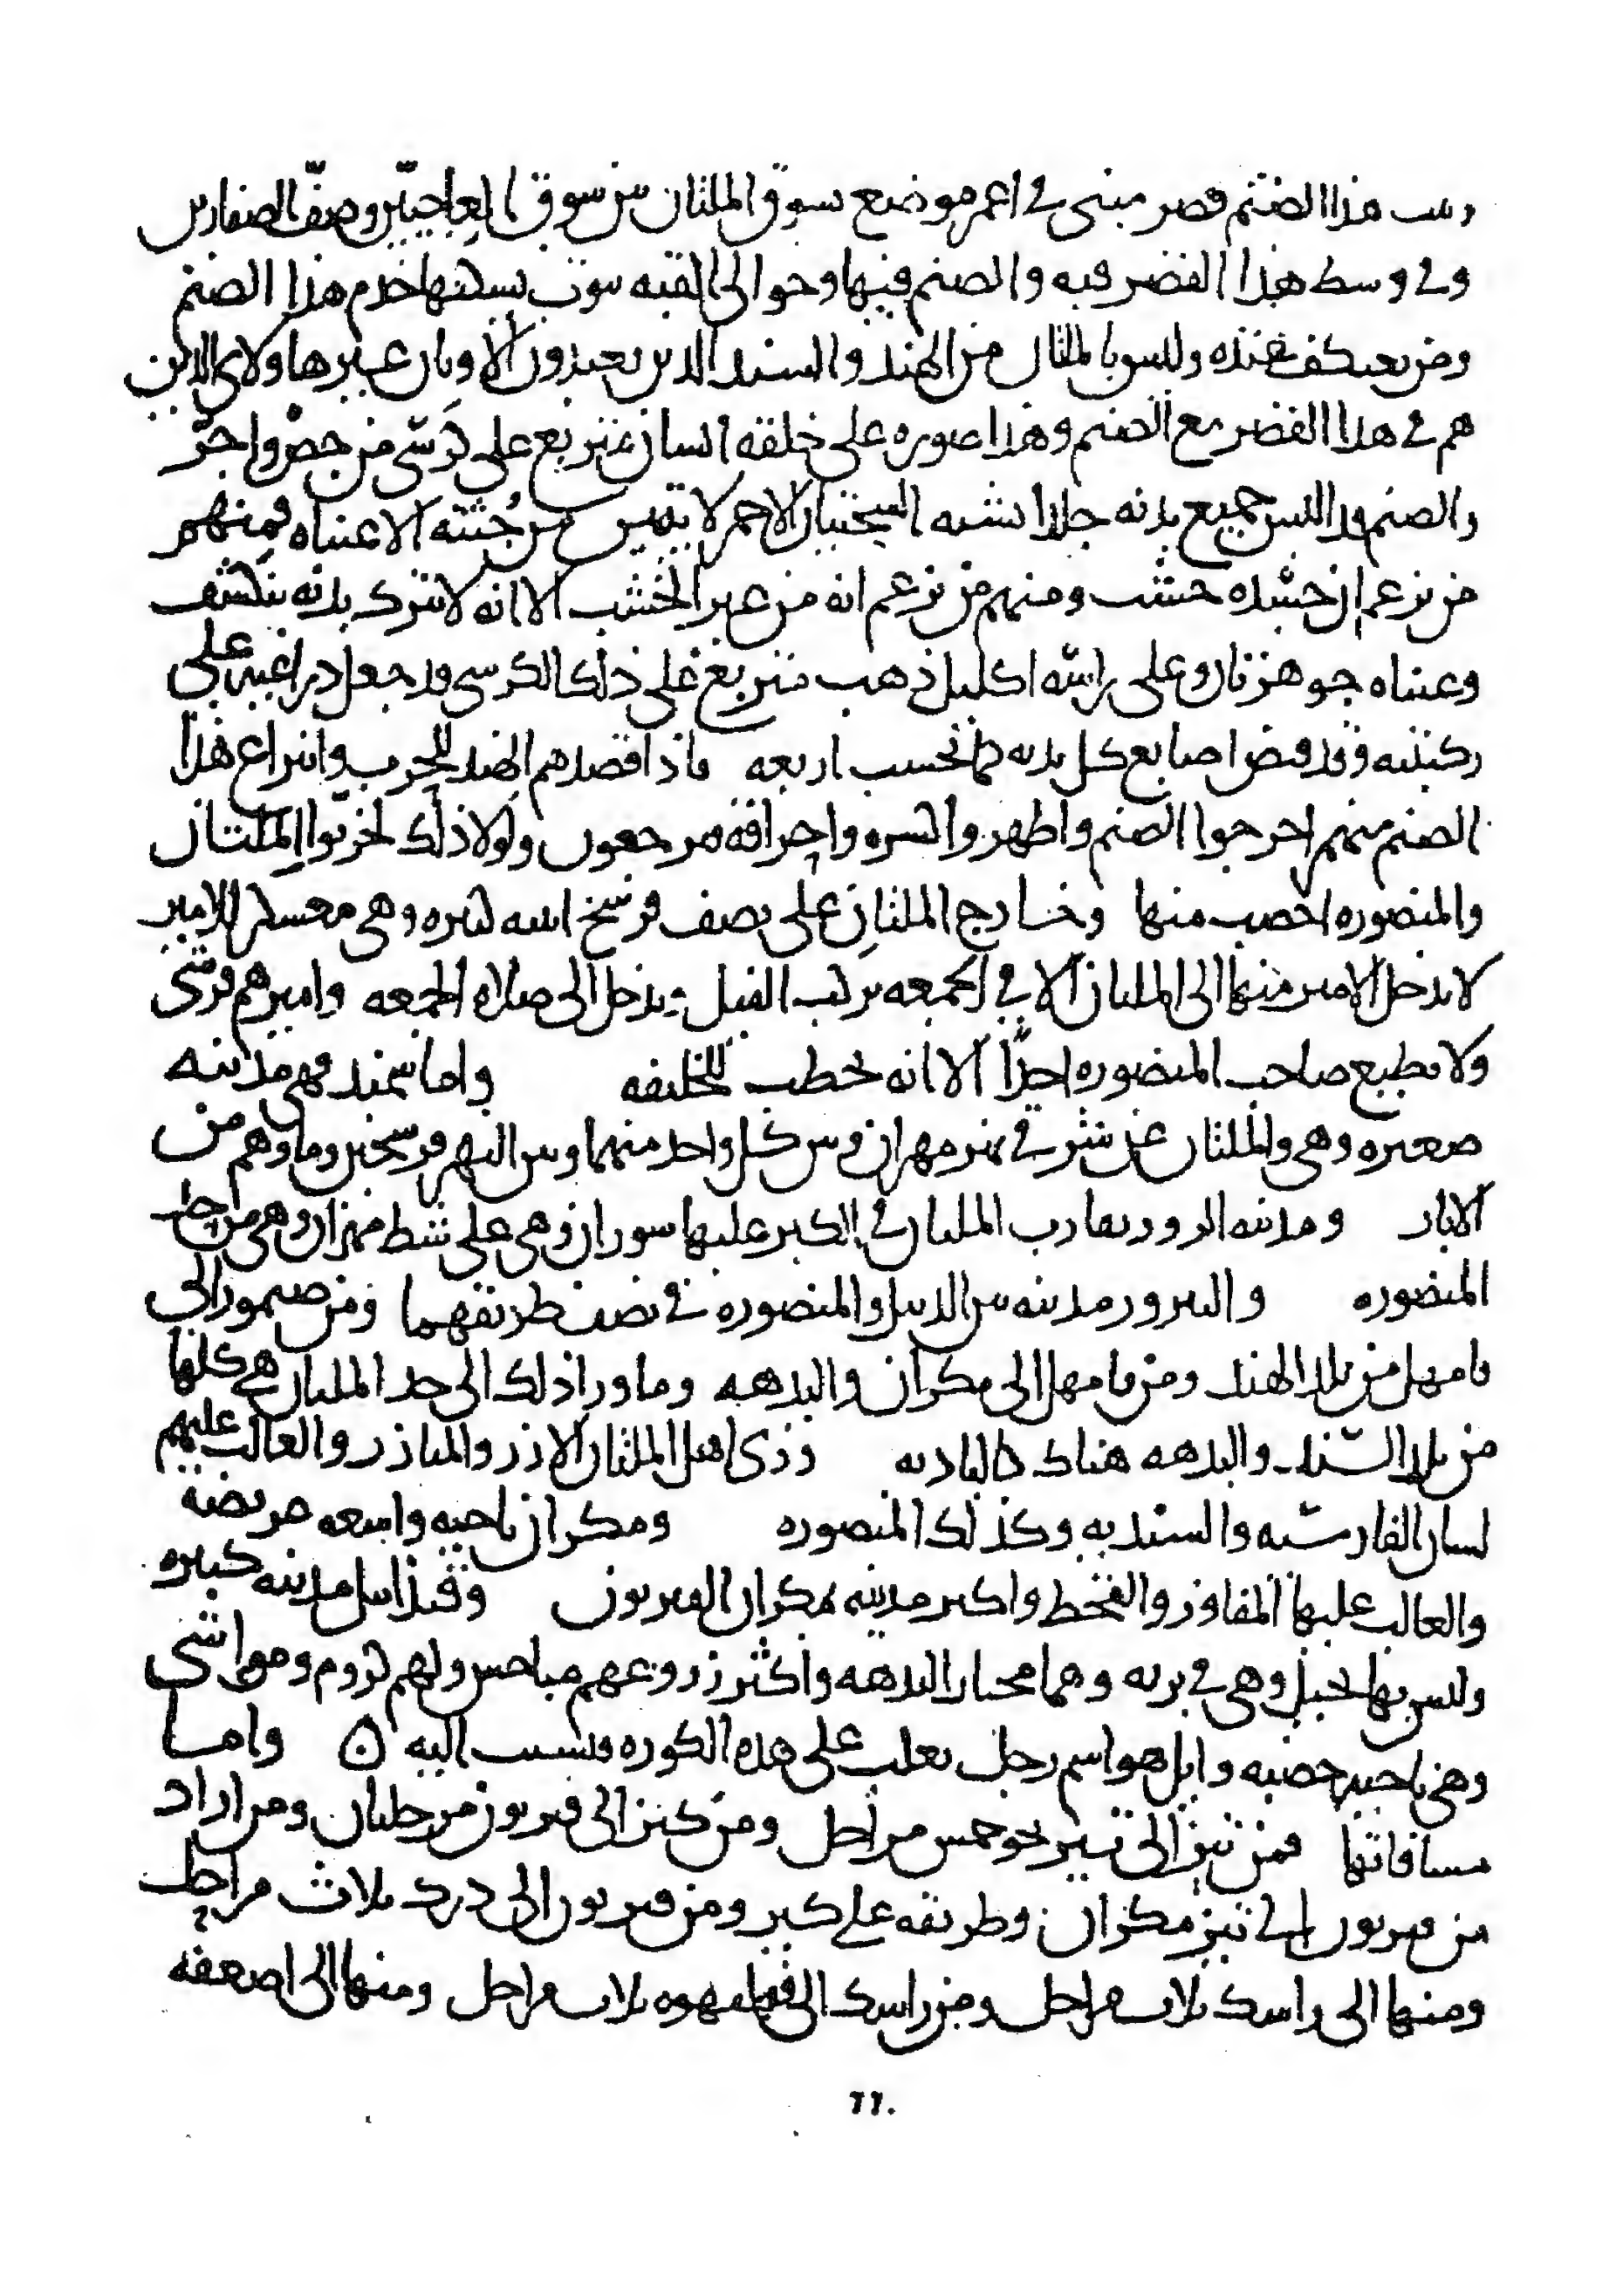 وبيت هذا الصنم قصر مبنى في اعمر موضع بسوق الملتان بين سوق العاجيين وصف الصفارين
وفي وسط هذا القصر قبه والصنم فيها وحوالى القبه بيوت يسكنها خدم هذا الصنم
ومن يعتكف عنده وليس بالملتان من الهند والسند الذين يعبدون الاوثان غير هاولاى الذين
هم في هذا القصر مع الصنم وهذا صوره على خلقه انسان متربع على كرسى من جص واجر
والصنم قد البس جميع بدنه جلدا يشبه السختيان الاحمر لا يتبين من جثته الا عيناه فمنهم
من يزعم ان جسده خشب ومنهم من يزعم انه من غير الخشب الا انه لا يترك بدنه ينكشف
وعيناه جوهرتان وعلى راسه اكليل ذهب متربع على ذلك الكرسى قد جعل ذراعيه على
ركبتيه وقد قبض اصابع كل يد له كما تحسب اربعه فاذا قصدهم الهند للحرب وانتزاع هذا
الصنم منهم اخرجوا الصنم واظهروا كسره واحراقه فيرجعون ولولا ذلك لخربوا الملتان
والمنصوره اخصب منها وخارج الملتان على نصف فرسخ ابنيه كثيره وهى معسكر للامير
لا يدخل الامير منها الى الملتان الا في الجمعه يركب الفيل ويدخل الى صلاه الجمعه واميرهم قرشى
ولا يطيع صاحب المنصوره احدا الا انه يخطب للخليفه واما بسمند فهى مدينه
صغيره وهى والملتان عن شرقي نهر مهران وبين كل واحد منهما وبين النهر فرسخين وماوهم من
الابار ومدينه الرور تقارب الملتان في الكبر عليها سوران وهى على شط مهران وهى من حد
المنصوره والنيرور مدينه بين الديبل والمنصوره في نصف طريقهما ومن صيمور الى
قامهل من بلد الهند ومن قامهل الى مكران والبدهه وما ورا ذلك الى حد الملتان هى كلها
من بلد السند والبدهه هناك كالباديه وزى اهل الملتان الازر والميازر والغالب عليهم
لسان الفارسيه والسنديه وكذلك المنصوره ومكران ناحيه واسعه عريضه
والغالب عليها المفاوز والقحط واكبر مدينه بمكران القيربون وقندابيل مدينه كبيره
وليس بها نخيل وهى في بريه وهما محتار البدهه واكثر زروعهم مباخس ولهم كروم ومواشى
وهى ناحيه خصبه وايل هو اسم رجل تغلب على هذه الكوره فنسبت اليه ه واما
مسافاتها فمن تيز الى نحو خمس مراحل ومن كيز الى قيربون مرحلتان ومن اراد
من قيربون الى تيز مكران وطريقه على كيز ومن قيربون الى درك ثلاث مراحل
ومنها الى راسك ثلاث مراحل ومن راسك الى فهلفهره ثلاث مراحل ومنها الى اصعفه